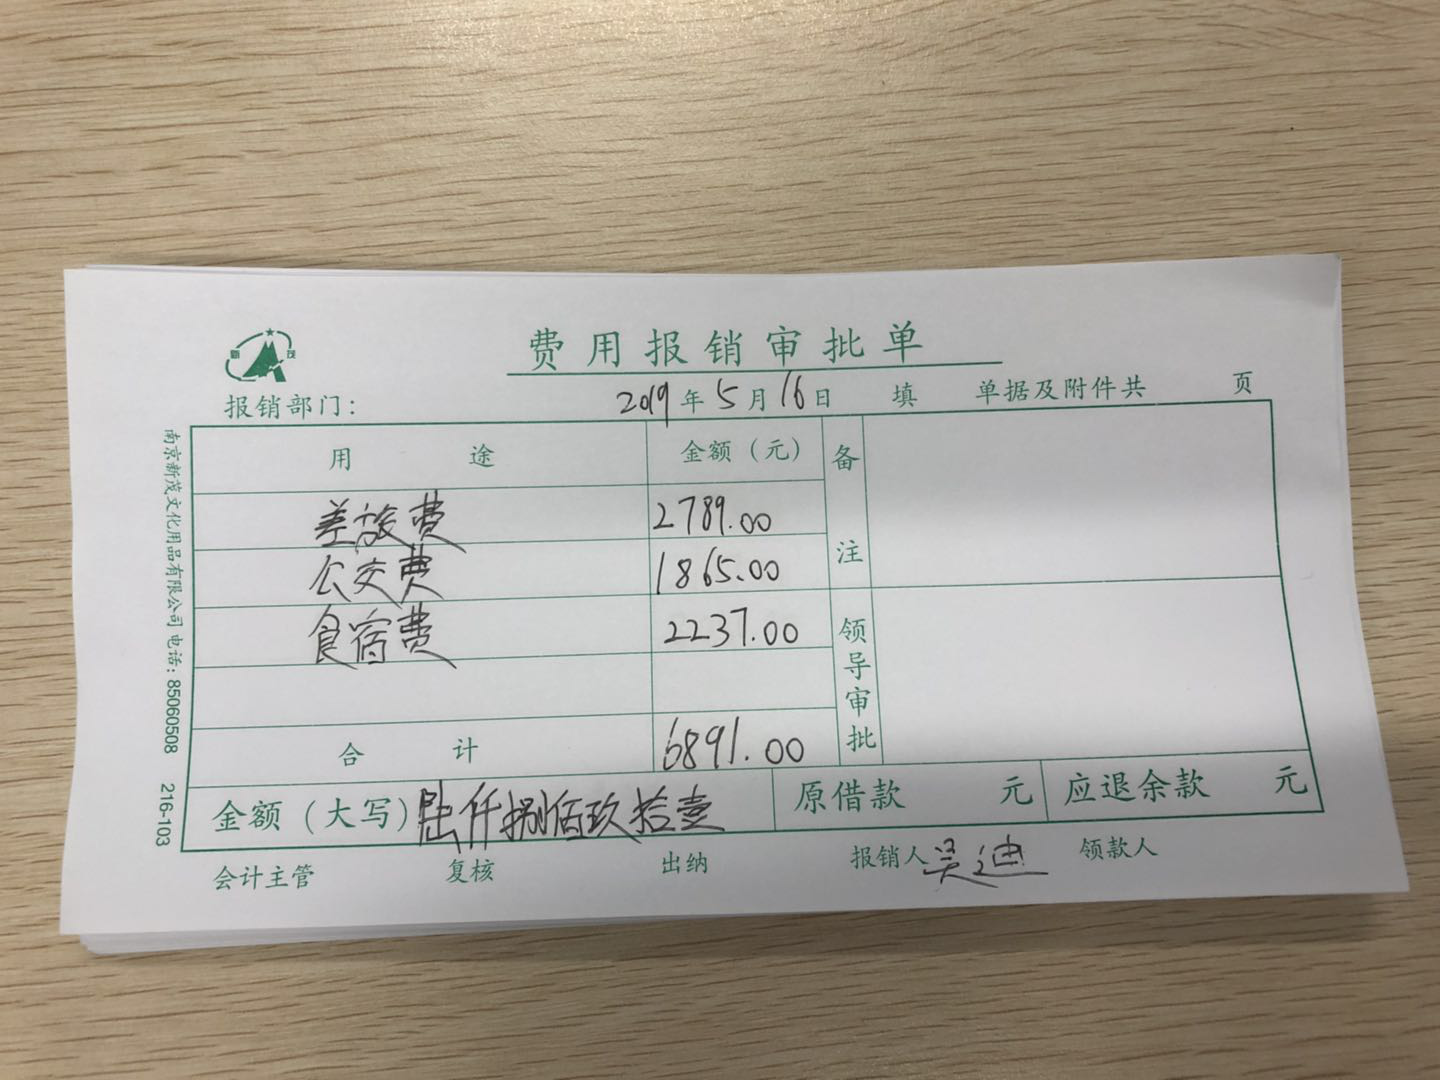 新 茂
费用报销审批单
报销部门： 2019年5月16日 填 单据及附件共 页
用 途 金额（元） 备注
差旅费 2789.00
公交费 1865.00
食宿费 2237.00
领导审批
合 计 6891.00
金额（大写）陆仟捌佰玖拾壹 原借款 元 应退余款 元
会计主管 复核 出纳 报销人 吴迪 领款人
南京新茂文化用品有限公司 电话：85060508 216-103